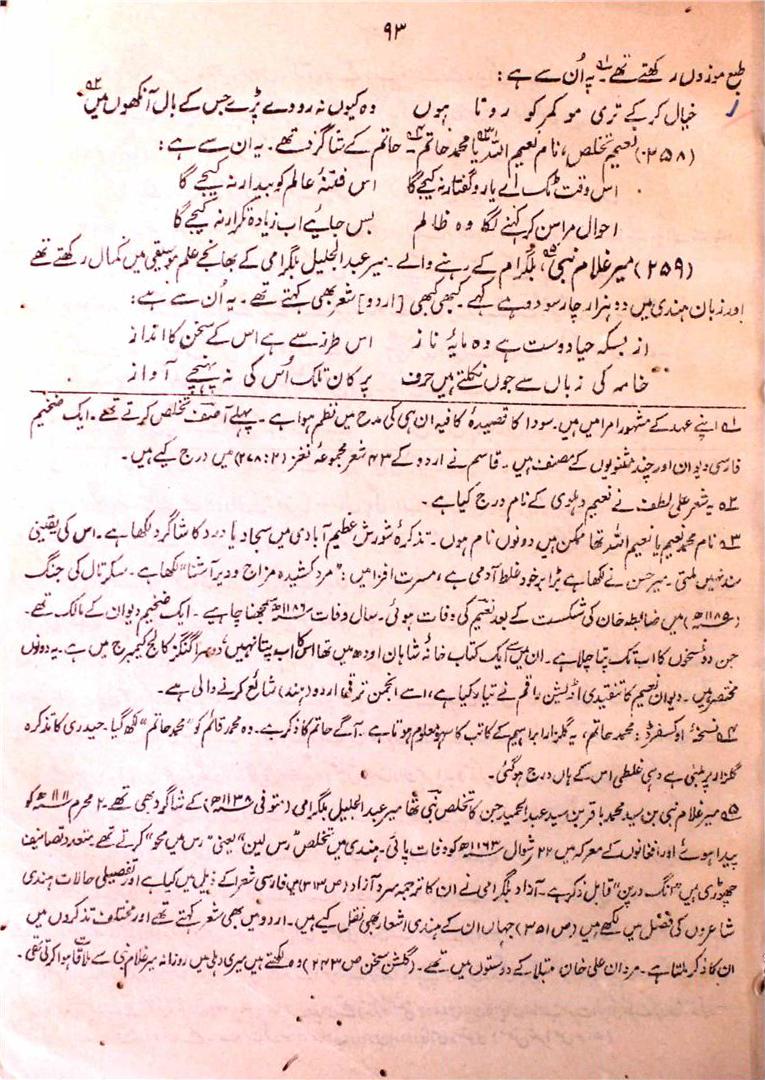 ۹۳
طبع موزوں رکھتے تھے۔ یہ اُن سے ہے:
خیال کر کے تری مو کمر کو روتا ہوں وہ کیوں نہ رودے پڑے جس کے بال آنکھوں میں
(۲۵۸) نعیم تخلص، نام نعیم اللہ یا محمد حاتم۔ حاتم کے شاگرد تھے۔ یہ ان سے ہے:
اس وقت ٹک اے یارو گفتار نہ کیجے گا اس فتنۂ عالم کو بیدار نہ کیجے گا
احوال مرا سن کر کہنے لگا وہ ظالم بس جائیے اب زیادہ تکرار نہ کیجے گا
(۲۵۹) میر غلام نبی، بلگرام کے رہنے والے۔ میر عبدالجلیل بلگرامی کے بھانجے علم موسیقی میں کمال رکھتے تھے
اور زبان ہندی میں دو ہزار چار سو دوہے کہے۔ کبھی کبھی [اردو] شعر بھی کہتے تھے۔ یہ اُن سے ہے:
از بسکہ حیا دوست ہے وہ مایۂ ناز اس طرز سے ہے اس کے سخن کا انداز
خامہ کی زباں سے جوں نکلتے ہیں حرف پر کان تلک اُس کی نہ پہنچے آواز
۱ اپنے عہد کے مشہور امرا میں ہیں۔ سودا کا قصیدۂ کافیہ ان ہی کی مدح میں نظم ہوا ہے۔ پہلے آصف تخلص کرتے تھے۔ ایک ضخیم
فارسی دیوان اور چند مثنویوں کے مصنف ہیں۔ قاسم نے اردو کے ۴۳ شعر مجموعۂ نغز (۲: ۲۶۸) میں درج کیے ہیں۔
۲ یہ شعر علی لطف نے نعیم دہلوی کے نام درج کیا ہے۔
۳ نام محمد نعیم یا نعیم اللہ تھا ممکن ہیں دونوں نام ہوں۔ تذکرۂ شورش عظیم آبادی میں سجاد یا درد کا شاگرد لکھا ہے۔ اس کی یقینی
سند نہیں ملتی۔ میر حسن نے لکھا ہے بڑا بر خود غلط آدمی ہے، مسرت افزا میں: "مرد کشیدہ مزاج و دیر آشنا" لکھا ہے۔ سکرتال کی جنگ
(۱۱۸۵ھ) میں ضابطہ خان کی شکست کے بعد نعیم کی وفات ہوئی۔ سال وفات ۱۱۸۶ھ سمجھنا چاہیے۔ ایک ضخیم دیوان کے مالک تھے۔
جن دو نسخوں کا اب تک پتا چلا ہے۔ ان میں سے ایک کتاب خانۂ شاہان اودھ میں تھا اس کا اب پتا نہیں، دوسرا کنگز کالج کیمبرج میں ہے۔ یہ دونوں
مختصر ہیں۔ دیوان نعیم کا تنقیدی اڈیشن راقم نے تیار کیا ہے، اسے انجمن ترقی اردو (ہند) شائع کرنے والی ہے۔
۴ نسخۂ اوکسفرڈ: محمد حاتم، یہ گلزار ابراہیم کے کاتب کا سہو معلوم ہوتا ہے۔ آگے حاتم کا ذکر ہے۔ وہ محمد قائم کو "محمد حاتم" لکھ گیا۔ حیدری کا تذکرہ
گلزار پر مبنی ہے وہی غلطی اس کے ہاں درج ہو گئی۔
۵ میر غلام نبی بن سید محمد باقر بن سید عبدالحمید جن کا تخلص نبی تھا میر عبدالجلیل بلگرامی (متوفی ۱۱۳۸ھ) کے شاگرد بھی تھے۔ ۲ محرم ۱۱۱۱ھ کو
پیدا ہوئے اور افغانوں کے معرکہ میں ۲۲ شوال ۱۱۶۳ھ کو وفات پائی۔ ہندی میں تخلص "رس لین" یعنی "رس میں محو" کرتے تھے متعدد تصانیف
چھوڑی ہیں "انگ درپن" قابل ذکر ہے۔ آزاد بلگرامی نے ان کا ترجمہ سرو آزاد (ص ۳۱۳) میں فارسی شعرا کے ذیل میں کیا ہے اور تفصیلی حالات ہندی
شاعروں کی فصل میں لکھے ہیں (ص ۳۵۱) جہاں ان کے ہندی اشعار بھی نقل کیے ہیں۔ اردو میں بھی شعر کہتے تھے اور مختلف تذکروں میں
ان کا ذکر ملتا ہے۔ مردان علی خان مبتلا کے دوستوں میں تھے۔ (گلشن سخن ص ۲۴۳) وہ لکھتے ہیں میری دہلی میں روزانہ میر غلام نبی سے ملاقات ہوا کرتی تھی۔